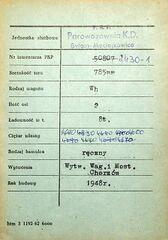 P.K.P.
Jednostka służbowa
Parowozownia K.D.
Nr inwentarza PKP
50807 2430-1
Szerokość toru
785mm
Rodzaj wagonu
Wh
Ilość osi
2
Ładowność w t.
8t.
Ciężar własny
Rodzaj hamulca
ręczny
Wytwórnia
Wytw. Wag.i Most.
Chorzów
Rok budowy
1948r.